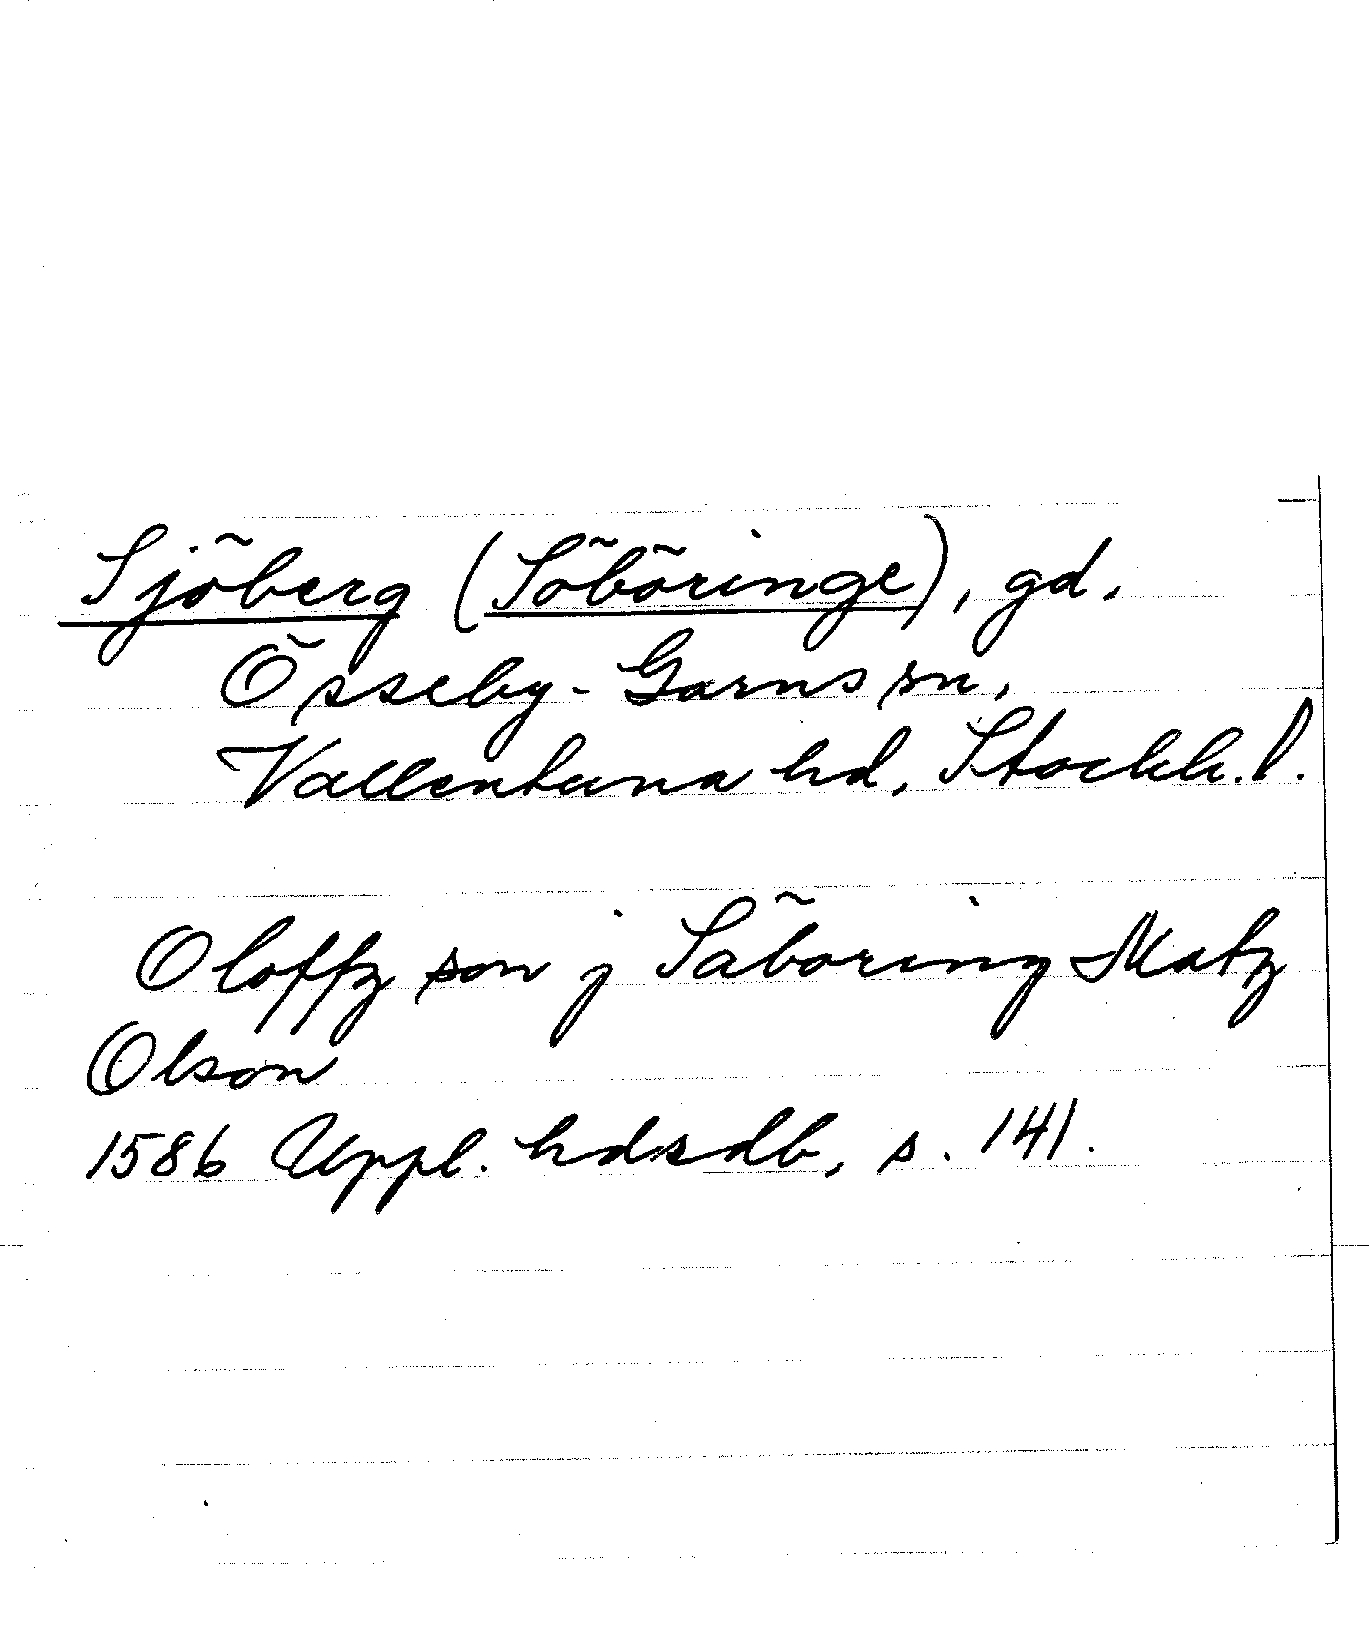 Sjöberg (Söböringe), gd.
Össeby-Garns sn,
Vallentuna hd, Stockh. l.
Oloffz son j Säboring Matz
Olson
1586 Uppl. hdsdb, s. 141.